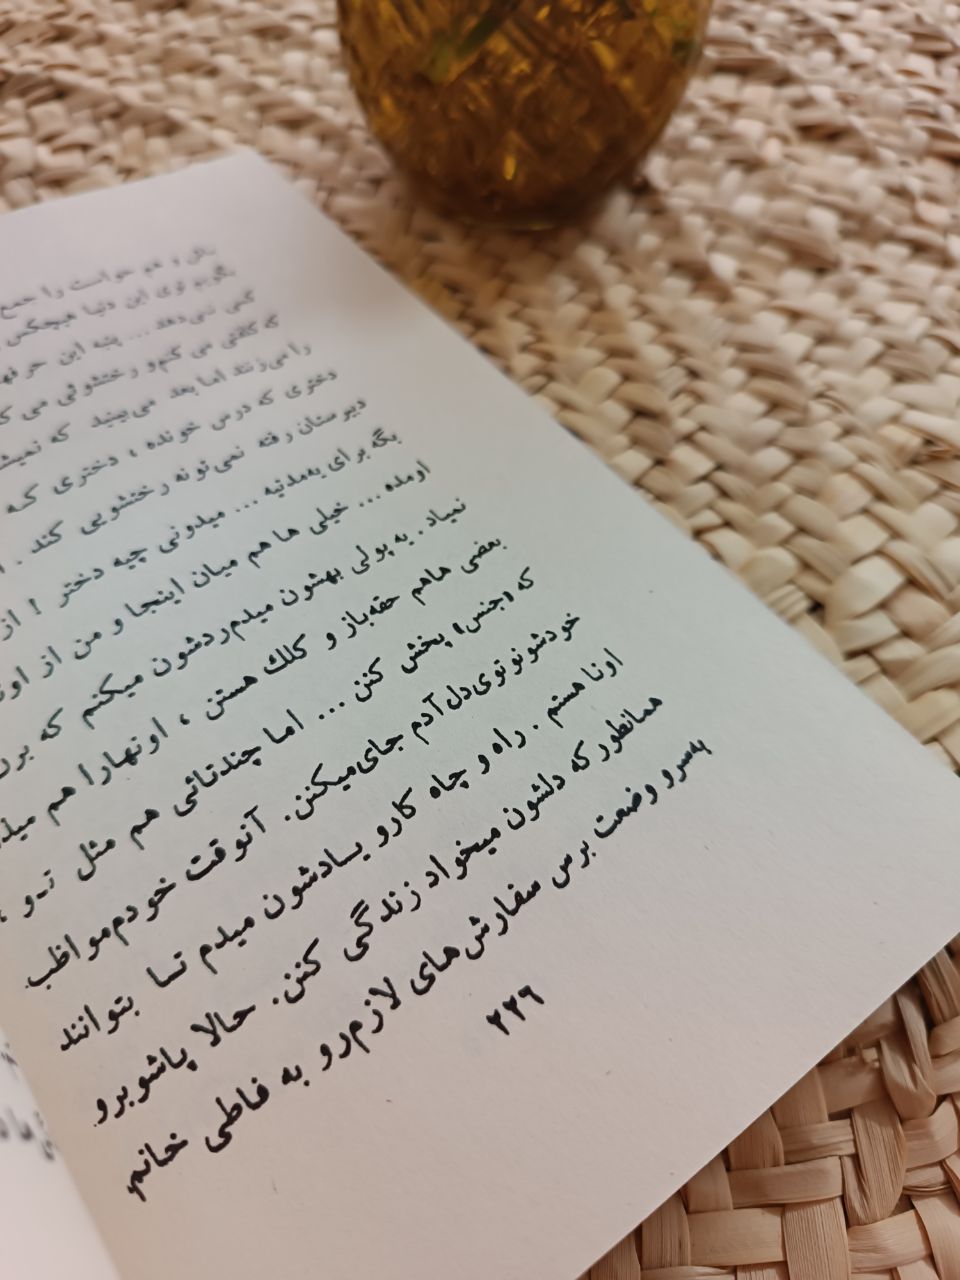 باش و هم حواست را جمع
بگویم توی این دنیا هیچکس
کمی نمی‌دهد ... پنبه این حرفها
که کلفتی می کنم و رختشوئی می
را می‌زنند اما بعد می‌بینید که نمیشه
دختری که درس خونده ، دختری که
دبیرستان رفته نمی‌تونه رختشویی کند .
بگه برای یه‌مدتیه ... میدونی چیه دختر ! از
اومده ... خیلی ها هم میان اینجا و من از
نمیاد . یه پولی بهشون میدم ردشون میکنم که برن
بعضی هاهم حقه‌باز و کلك هستن ، اونهارا هم
که «جنس» پخش کنن ... اما چندتائی هم مثل تـو ،
خودشونو توی دل آدم جای‌میکنن. آنوقت خودم‌مواظب
اونا هستم . راه و چاه کارو یـادشون میدم تـا بتوانند
همانطور که دلشون میخواد زندگی کنن. حالا پاشو برو
به‌سرو وضعت برس سفارش‌های لازم‌رو به فاطی خانم
۲۲۶